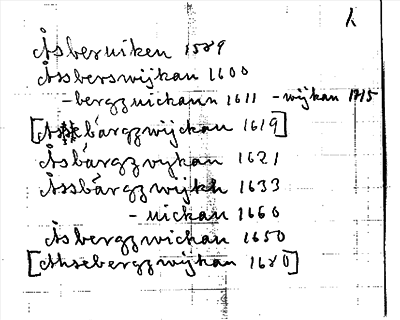 h
Åsberuiken 1589
Åssberswijkan 1600
-bergzuickann 1611 - wijkan 1715
[Assebärgzwijckan 1619]
Åsbärgzvykan 1621
Åssbärgzwijkh 1633
- uickan 1660
Åsbergzwichan 1650
[Ahsebergzwijkan 1680]